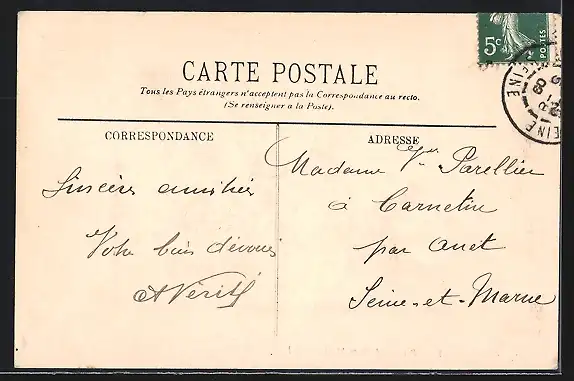 5c
POSTES
CARTE POSTALE
Tous les Pays étrangers n'acceptent pas la Correspondance au recto.
(Se renseigner a la Poste).
CORRESPONDANCE
Sincères amitiés
Votre bien dévoué
A Vérité
ADRESSE
Madame Vve Parellier
à Carnetin
par Anet
Seine-et-Marne
SEINE